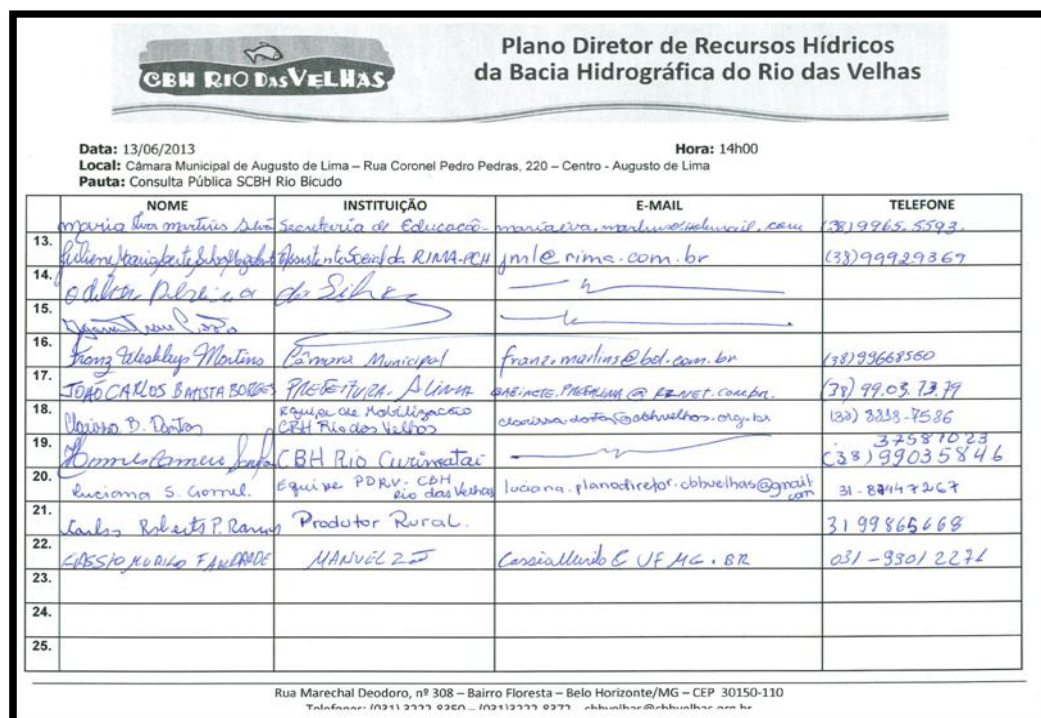 CBH RIO DAS VELHAS
Plano Diretor de Recursos Hídricos
da Bacia Hidrográfica do Rio das Velhas
Data: 13/06/2013 Hora: 14h00
Local: Câmara Municipal de Augusto de Lima – Rua Coronel Pedro Pedras, 220 – Centro - Augusto de Lima
Pauta: Consulta Pública SCBH Rio Bicudo
NOME INSTITUIÇÃO E-MAIL TELEFONE
Maria martins Silva Secretaria de Educação (38) 9965.5593
13. Assistente Social da RIMA-PCH jml@rima.com.br (38) 99929369
14. Odilon Pereira da Silva
15.
16. Franz Martins Câmara Municipal franz.martins@bol.com.br (38) 99668560
17. JOÃO CARLOS BATISTA BORGES PREFEITURA A. LIMA (38) 99.03.73.79
18. B. Dantas Equipe de Mobilização CBH Rio das Velhas
19. CBH Rio Curimataí 37581023 (38) 99035846
20. Luciana S. Gomes. Equipe PDRV. CBH Rio das Velhas luciana.planodiretor.cbhvelhas@gmail.com
21. Carlos Roberto P. Ramos Produtor Rural. 31 99865668
22. CASSIO MURILO F ANDRADE MANUELZÃO UFMG.BR 031-93012271
23.
24.
25.
Rua Marechal Deodoro, nº 308 – Bairro Floresta – Belo Horizonte/MG – CEP 30150-110
Telefones: (031) 3222-8350 – (031)3222-8372 - cbhvelhas@cbhvelhas.org.br